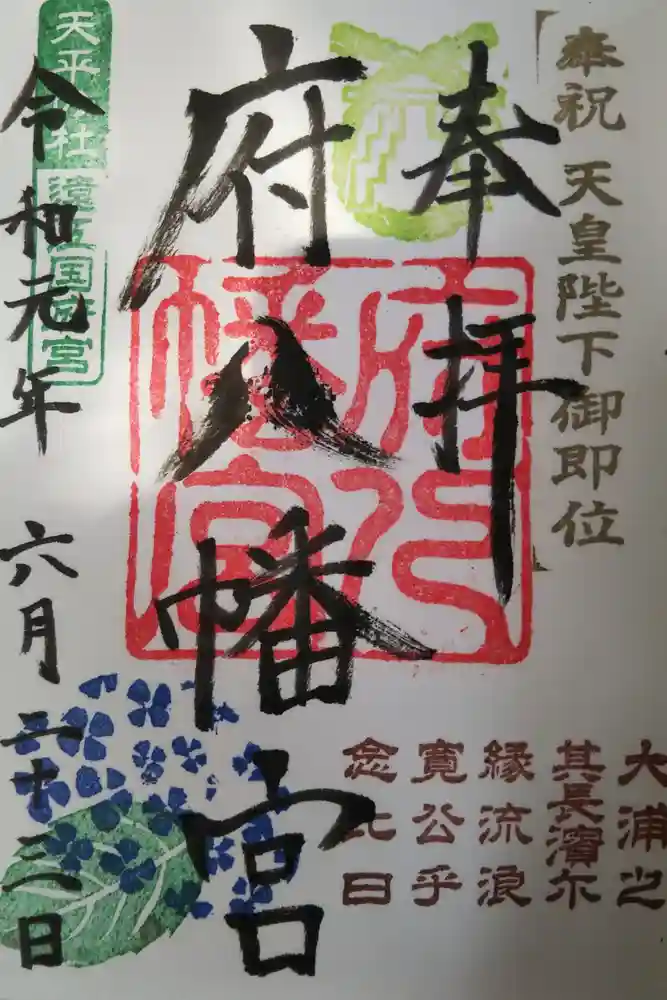 奉祝 天皇陛下御即位
大浦之
其長濱尓
縁流浪
寛公乎
念比日
奉拝
府八幡宮
府八
幡宮
遠江国府宮
令和元年 六月 二十三日